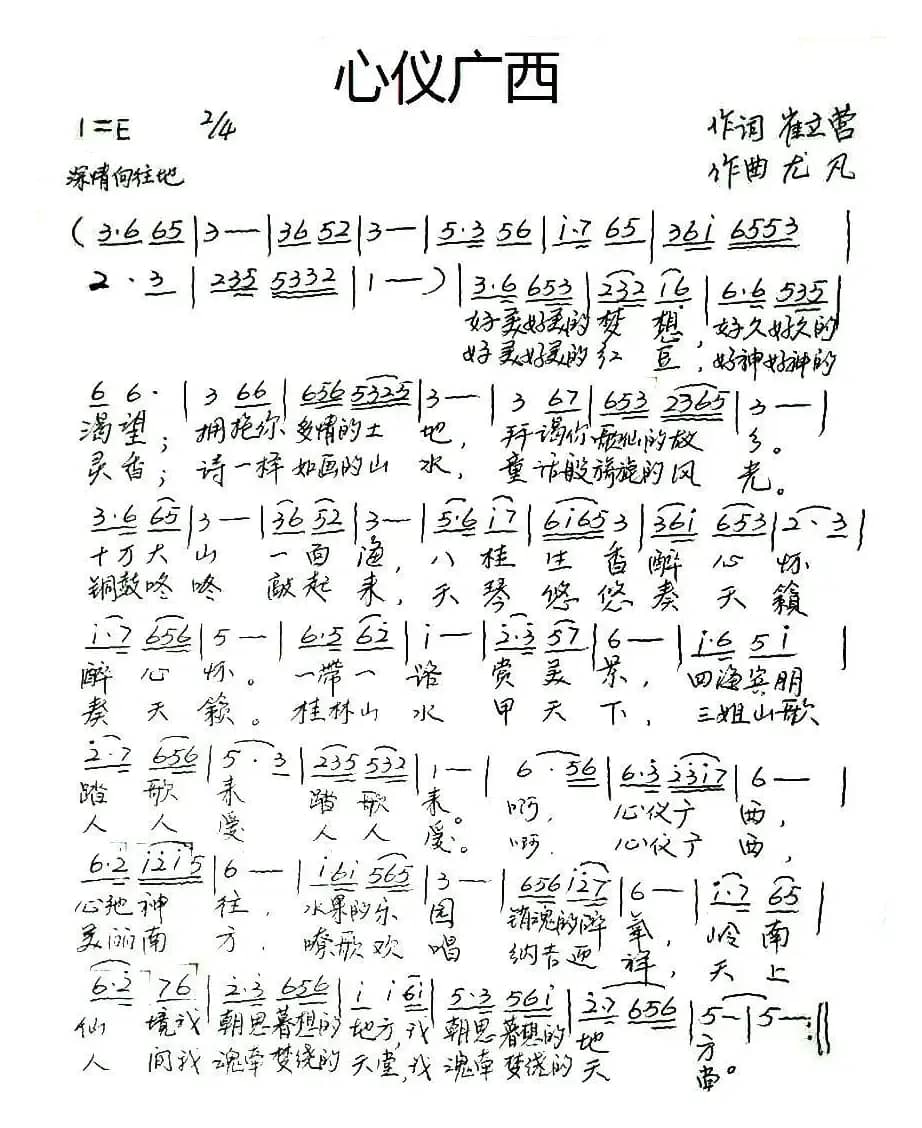 心仪广西
1=E 2/4 作词 崔立营
深情向往地 作曲 尤凡
(3·6 65|3—|36 52|3—|5·3 56|i·7 65|36i 6553|
2·3|235 5332|1—)|3·6 653|232 i6|6·6 535|
好美好美的梦想,好久好久的
好美好美的红豆,好神好神的
6 6·|3 66|656 5325|3—|3 67|653 2365|3—|
渴望;拥抱你多情的土地,拜谒你歌仙的故乡。
灵香;诗一样如画的山水,童话般旖旎的风光。
3·6 65|3—|36 52|3—|5·6 i7|6i65 3|36i 653|2·3|
十万大山一面海,八桂生香醉心怀
铜鼓咚咚敲起来,天琴悠悠奏天籁
i·7 656|5—|6·5 62|i—|2·3 57|6—|i·6 5i|
醉心怀。一带一路赏美景,四海宾朋
奏天籁。桂林山水甲天下,三姐山歌
2·7 656|5·3|235 532|1—|6·56|6·3 23i7|6—|
踏歌来踏歌来。啊,心仪广西,
人人爱人人爱。啊,心仪广西,
6·2 i2i5|6—|i6i 565|3—|656 i27|6—|i·7 65|
心驰神往,水果的乐园销魂的醉氧,岭南
美丽南方,嘹歌欢唱纳吉迎祥,天上
6·2 76|2·3 656|i i6i|5·3 56i|2·7 656|5—|5—:‖
仙境我朝思暮想的地方,我朝思暮想的地方
人间我魂牵梦绕的天堂,我魂牵梦绕的天堂。